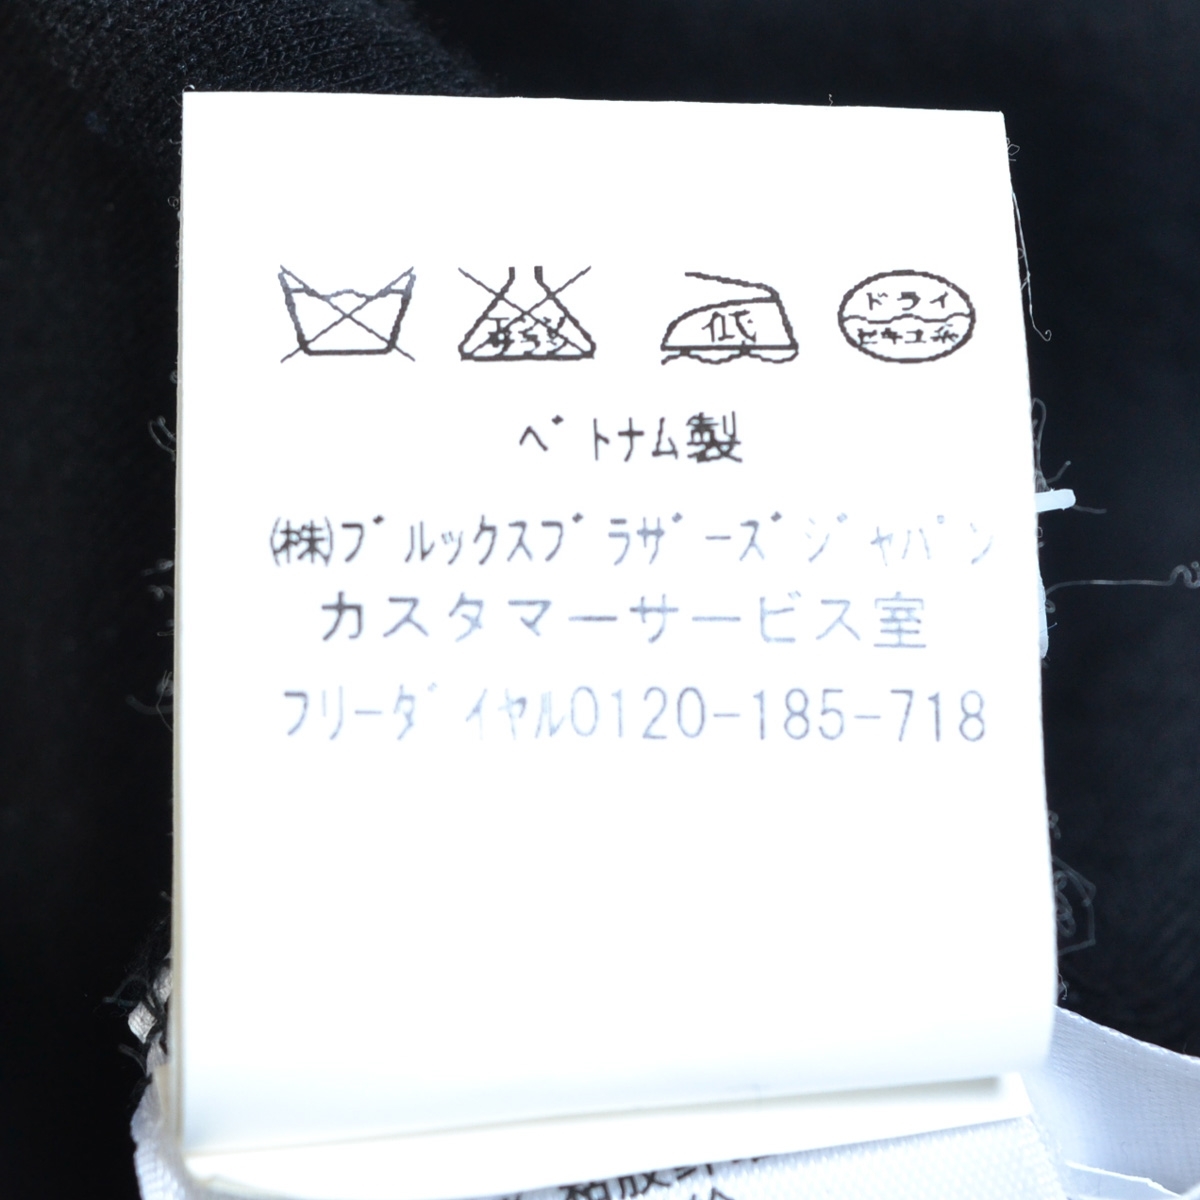 エンソサラシ 低 ドライ セキユ系
ベトナム製
㈱ブルックスブラザーズジャパン
カスタマーサービス室
フリーダイヤル0120-185-718